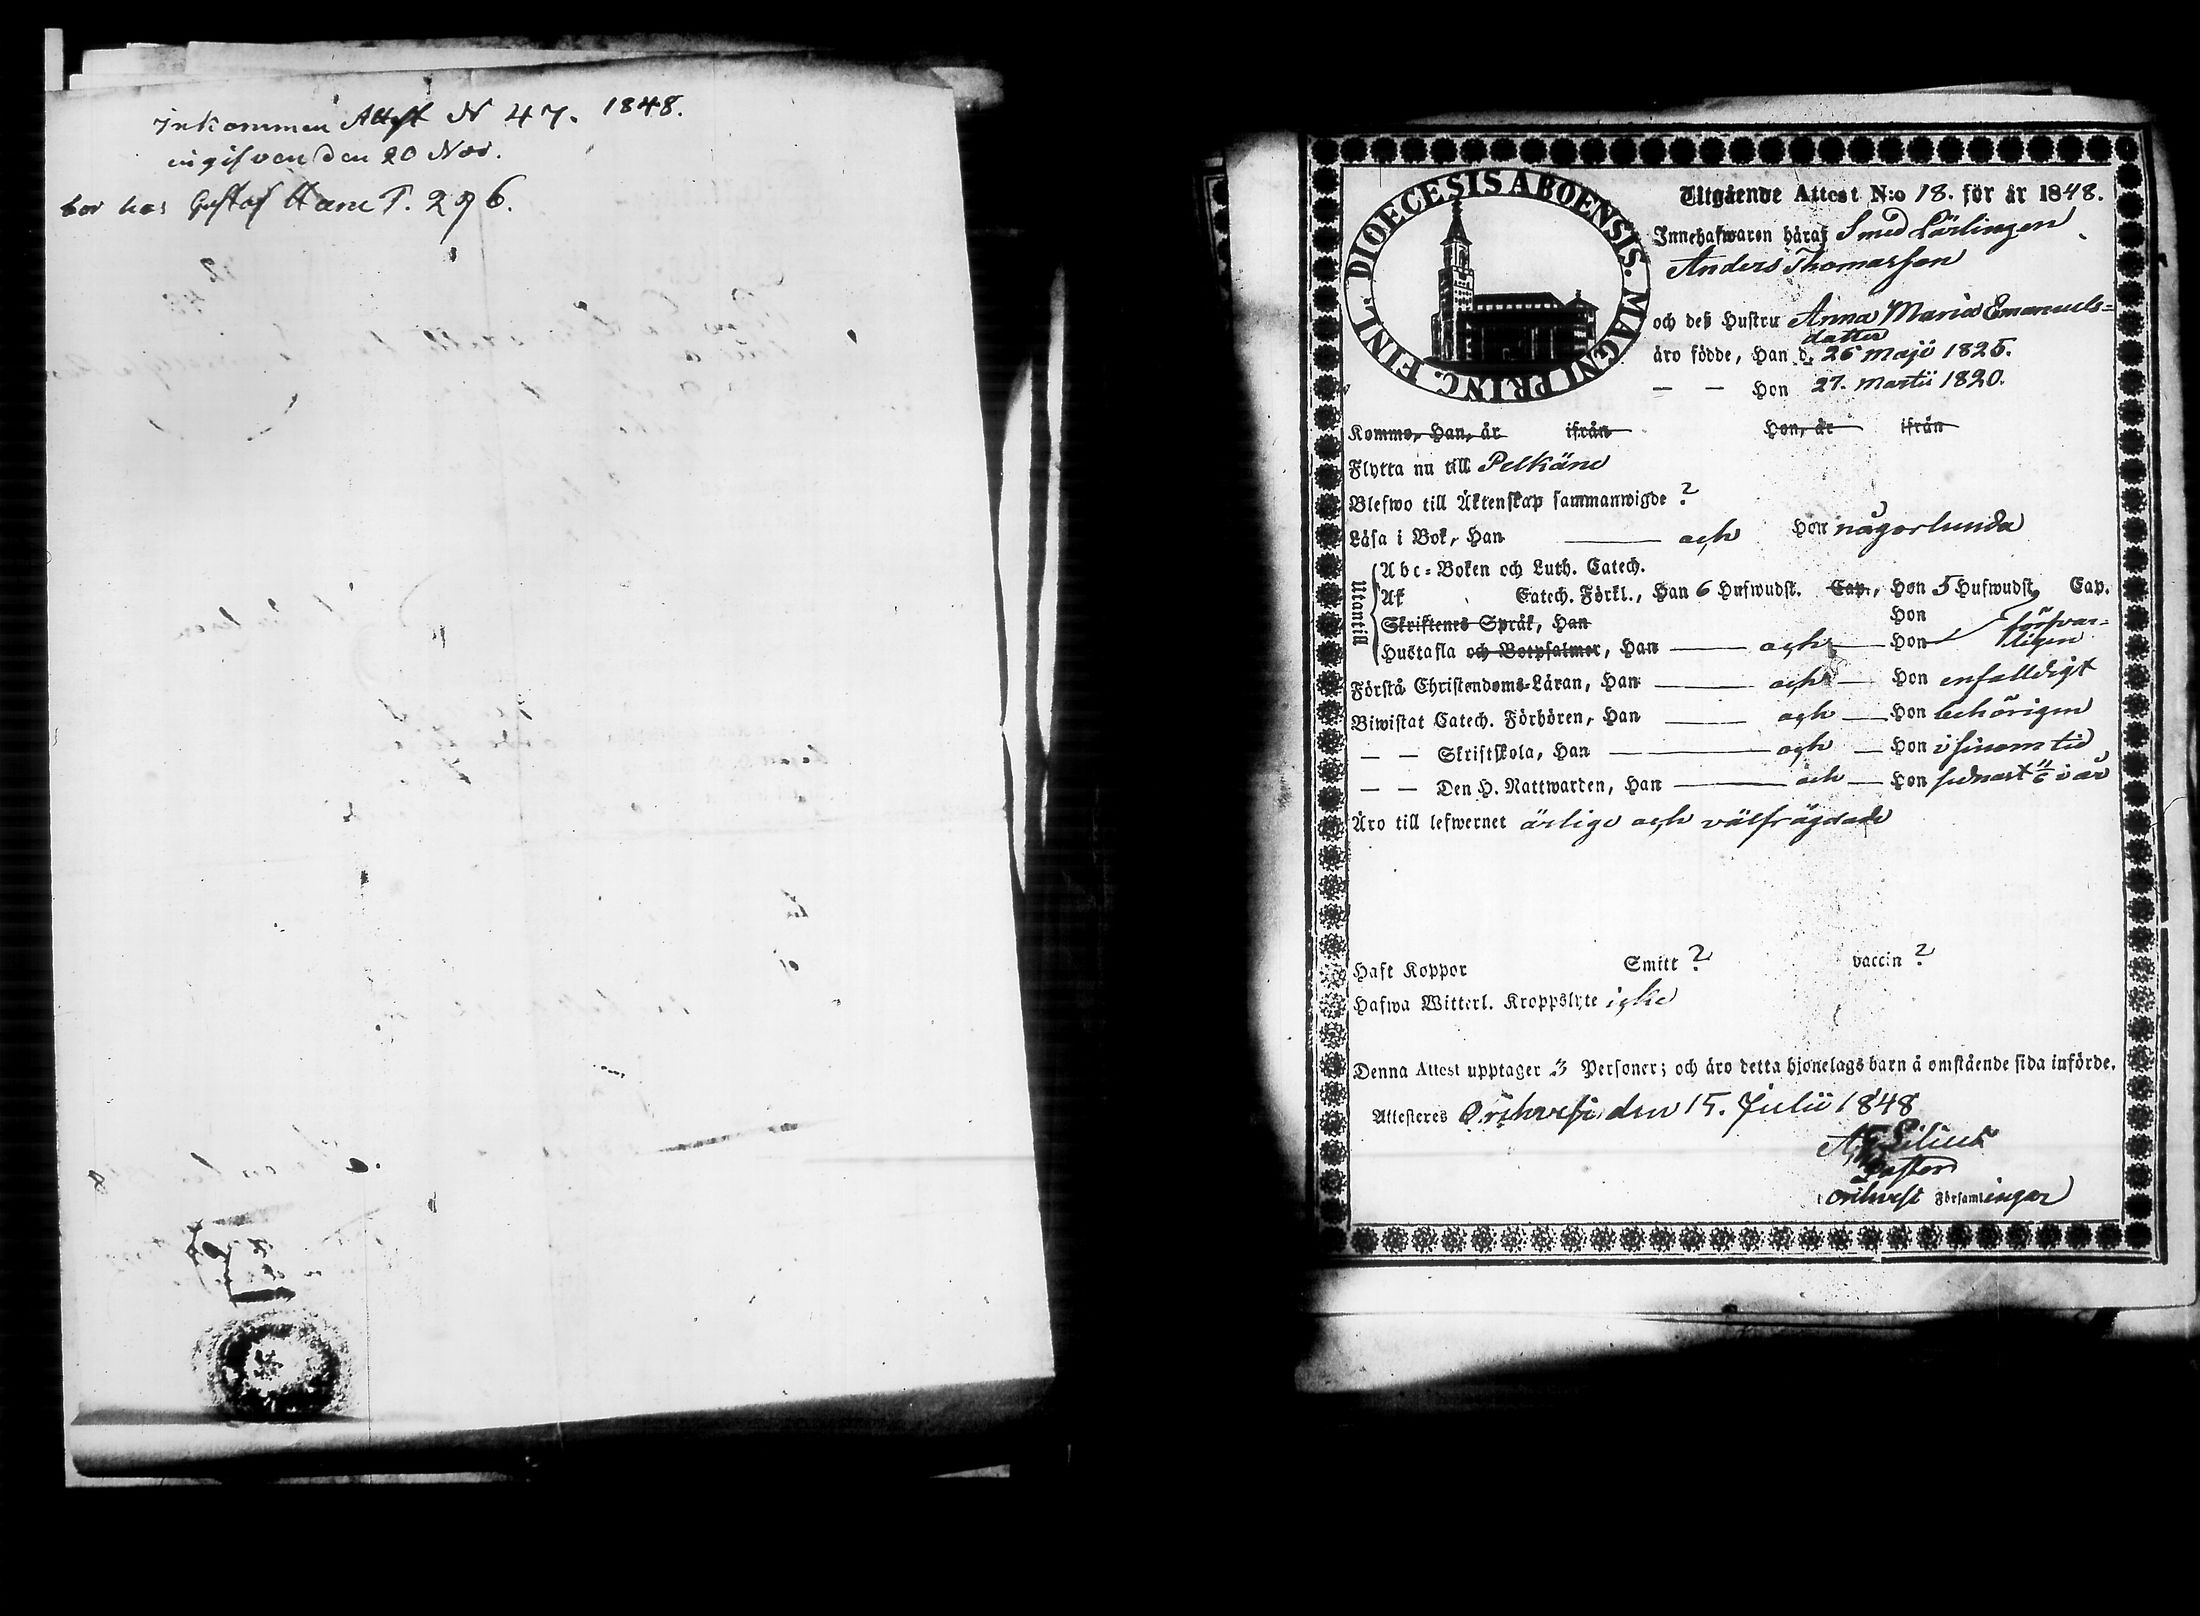 Inkommen Attest N 47. 1848.
ingifven den 20 Nov.
bor hos Gustaf Hane P. 296.
DIOECESIS ABOENSIS. MAGNI PRINC. FINL.
Utgående Attest N:o 18. för år 1848.
Innehafwaren häraf Smed Lärlingen
Anders Thomasson
och deß Hustru Anna Maria Emanuels-
dotter
äro födde, Han d. 26 Maji 1825.
— — Hon 27. Martii 1820.
Kommo, Han, år ifrån Hon, år ifrån
Flytta nu till Pelkäne
Blefwo till Äktenskap sammanwigde ?
Läsa i Bok, Han —— och Hon någorlunda
Utantill
Abc-Boken och Luth. Catech.
Af Catech. Förkl., Han 6 Hufwudst. Cap., Hon 5 Hufwudst, Cap.
Skriftenes Språk, Han Hon försvar-
Hustafla och Botpsalmer, Han —— och — Hon ligen
Förstå Christendoms-Läran, Han —— och — Hon enfalldigt
Biwistat Catech. Förhören, Han —— och — Hon behörigen
— — Skriftskola, Han —— och — Hon i sinom tid
— — Den H. Nattwarden, Han —— och — Hon sednast 11/6 i år
Äro till lefwernet ärlige och välfrägdade
Haft Koppor Smitt ? vaccin ?
Hafwa Witterl. Kroppslyte icke
Denna Attest upptager 3 Personer; och äro detta hjonelags barn å omstående sida införde.
Attesteres Orihvesi den 15. Julii 1848
Lilius
Pastor
i Orihvesi Församlingar